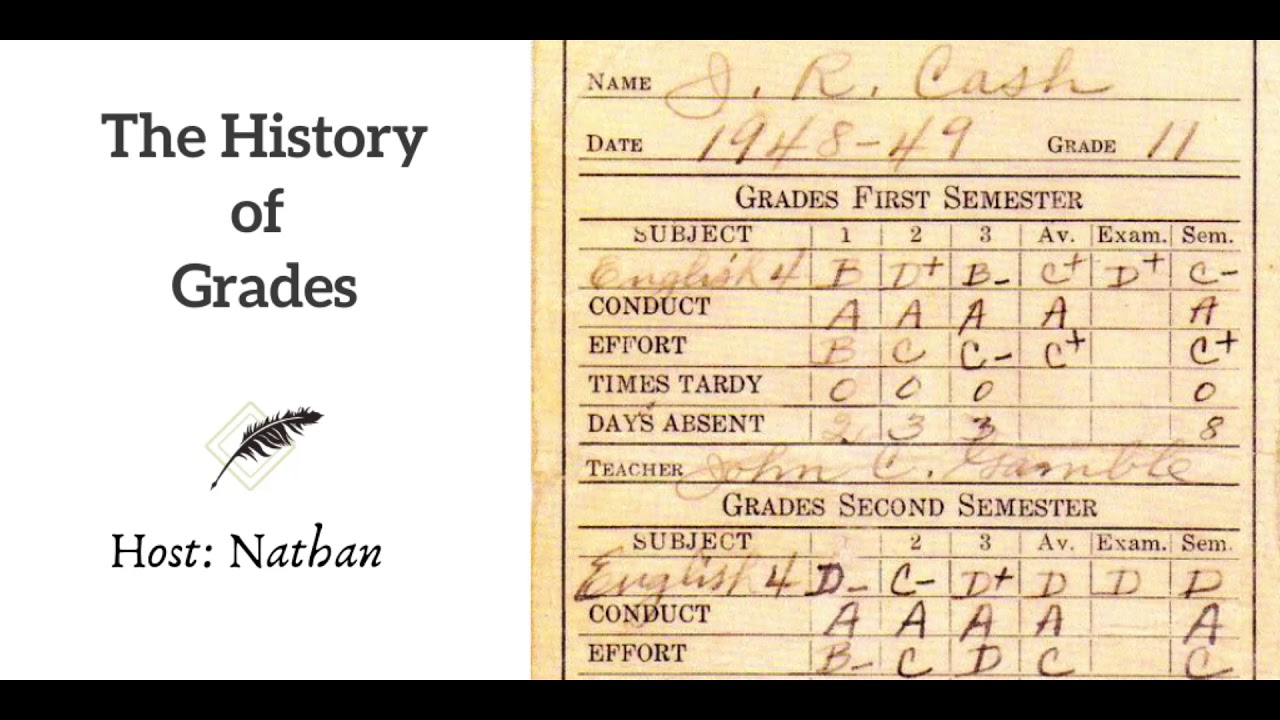 The History
of
Grades
Host: Nathan
NAME J. R. Cash
DATE 1948-49 GRADE 11
GRADES FIRST SEMESTER
SUBJECT 1 2 3 Av. Exam. Sem.
English 4 B D+ B- C+ D+ C-
CONDUCT A A A A A
EFFORT B C C- C+ C+
TIMES TARDY 0 0 0 0
DAYS ABSENT 2 3 3 8
TEACHER John C. Gamble
GRADES SECOND SEMESTER
SUBJECT 2 3 Av. Exam. Sem.
English 4 D- C- D+ D D D
CONDUCT A A A A A
EFFORT B- C D C C